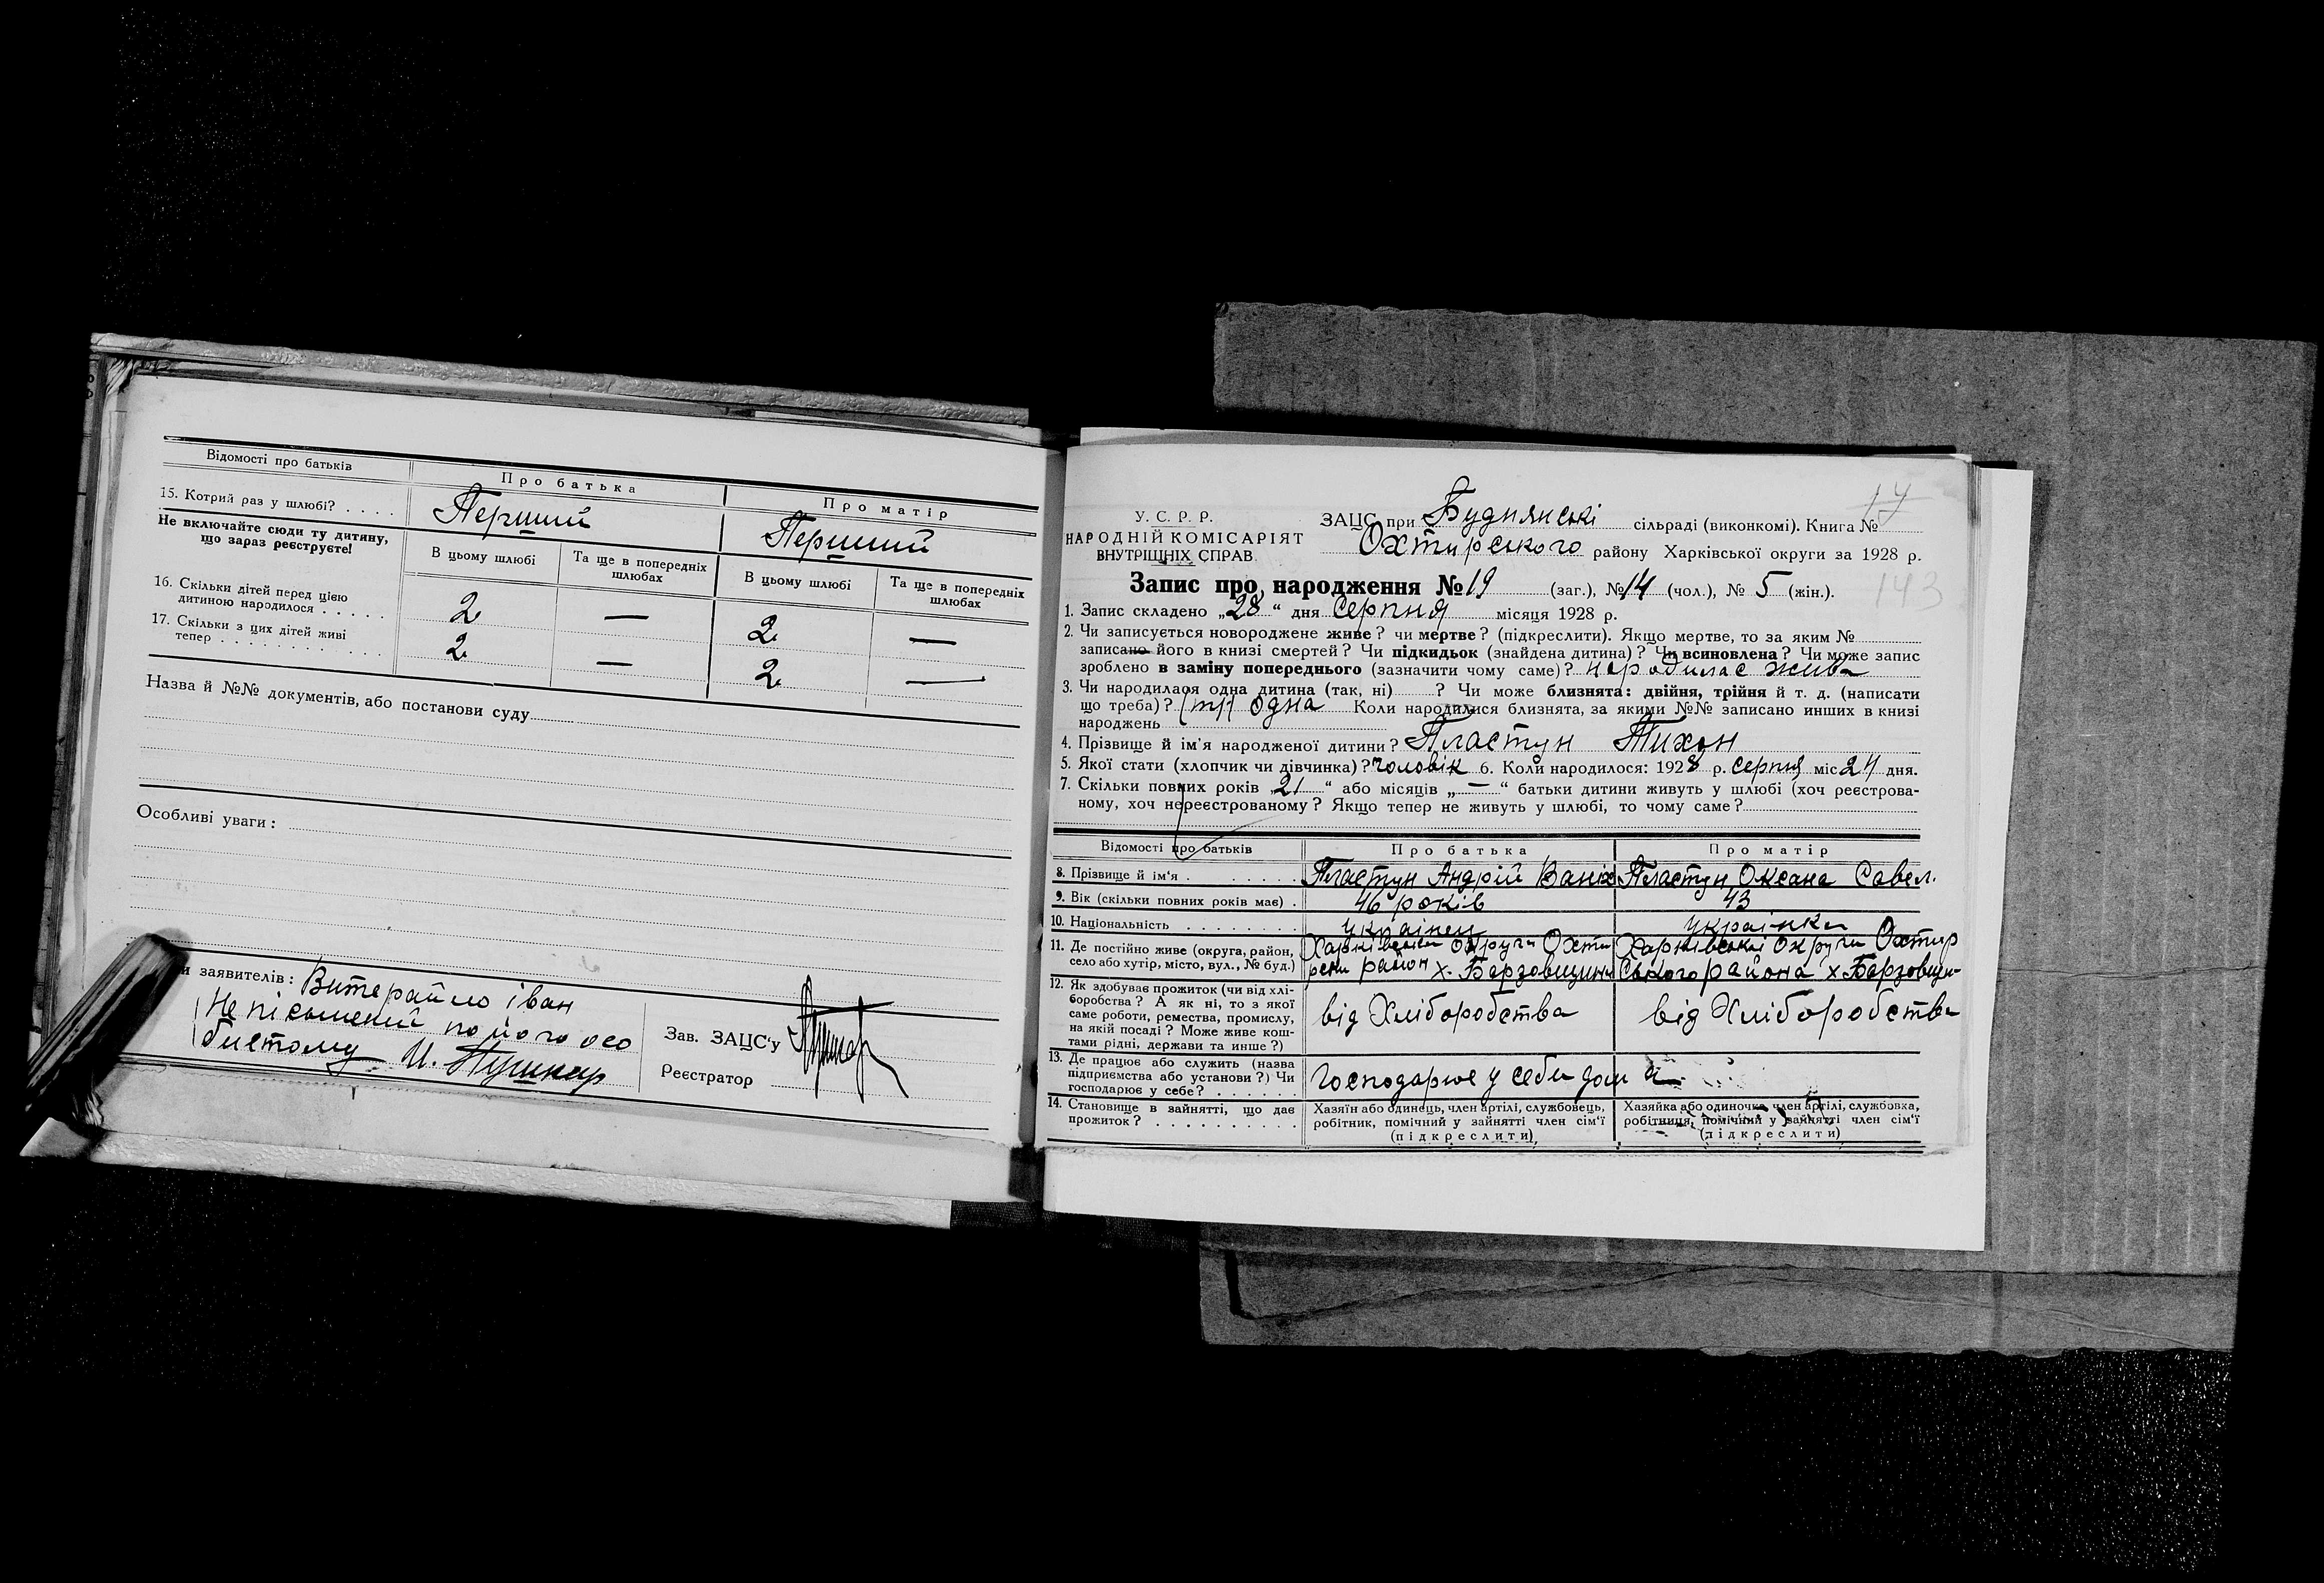 Відомості про батьків
Про батька
Про матір
15. Котрий раз у шлюбі? . . . .
Перший
Перший
Не включайте сюди ту дитину,
що зараз реєструєте!
В цьому шлюбі
Та ще в попередніх
шлюбах
В цьому шлюбі
Та ще в попередніх
шлюбах
16. Скільки дітей перед цією
дитиною народилося . . . . .
2 — 2 —
17. Скільки з цих дітей живі
тепер . . . . . . . . . . . .
2 — 2 —
Назва й №№ документів, або постанови суду
Особливі уваги:
и заявителів: Витерайло іван
Не пісьмений по його осо
бистому И. Пушкар
Зав. ЗАЦС'у
Реєстратор
17
У. С. Р. Р.
НАРОДНІЙ КОМІСАРІЯТ
ВНУТРІЩНІХ СПРАВ
ЗАЦС при Буднянські сільраді (виконкомі). Книга №
Охтирського району Харківської округи за 1928 р.
143
Запис про народження № 19 (заг.), № 14 (чол.), № 5 (жін.).
1. Запис складено „28“ дня Серпня місяця 1928 р.
2. Чи записується новороджене живе? чи мертве? (підкреслити). Якщо мертве, то за яким №
записано його в книзі смертей? Чи підкидьок (знайдена дитина)? Чи всиновлена? Чи може запис
зроблено в заміну попереднього (зазначити чому саме)? народилас жива
3. Чи народилася одна дитина (так, ні) ? Чи може близнята: двійня, трійня й т. д. (написати
що треба)? одна Коли народилися близнята, за якими №№ записано инших в книзі
народжень
4. Прізвище й ім'я народженої дитини? Пластун Тихон
5. Якої стати (хлопчик чи дівчинка)? Чоловік 6. Коли народилося: 1928 р. серпня міс 24 дня.
7. Скільки повних років „21“ або місяців „—“ батьки дитини живуть у шлюбі (хоч реєстрова-
ному, хоч нереєстрованому? Якщо тепер не живуть у шлюбі, то чому саме?
Відомості про батьків
Про батька
Про матір
8. Прізвище й ім'я . . . . . . .
Пластун Андрій
Пластун Оксана Савел.
9. Вік (скільки повних років має) .
46 років
43
10. Національність . . . . . . . .
українец
українки
11. Де постійно живе (округа, район,
село або хутір, місто, вул., № буд.)
Харківськи округи Охти
рски район х. Барзовщини
Харківськоі округи Охтир
Ського района х Барзовщи-
12. Як здобуває прожиток (чи від хлі-
боробства? А як ні, то з якої
саме роботи, ремества, промислу,
на якій посаді? Може живе кош-
тами рідні, держави та инше?)
від Хліборобства
від Хліборобства
13. Де працює або служить (назва
підприємства або установи?) Чи
господарює у себе? . . . . . .
Господарює у себи дома
14. Становище в зайнятті, що дає
прожиток? . . . . . . . . . .
Хазяїн або одинець, член артілі, службовець,
робітник, помічний у зайнятті член сім'ї
(підкреслити)
Хазяйка або одиночка, член артілі, службовка,
робітниця, помічний у зайнятті член сім'ї
(підкреслити)